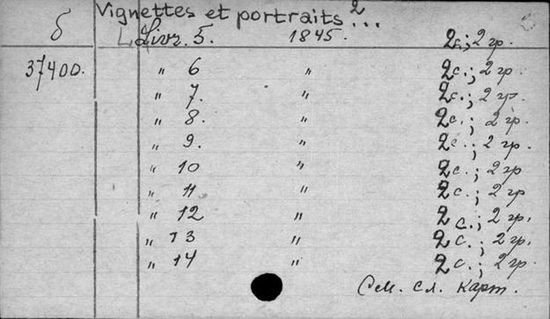 Vignettes et portraits 2...
б Livr. 5. 1845. 2с.; 2 гр.
37400. " 6 " 2с.; 2 гр.
" 7. " 2с.; 2 гр.
" 8. " 2с.; 2 гр.
" 9. " 2с.; 2 гр.
" 10 " 2с.; 2 гр
" 11 " 2с.; 2 гр.
" 12 " 2с.; 2 гр.
" 13 " 2с.; 2 гр.
" 14 " 2с.; 2 гр.
См. сл. карт.